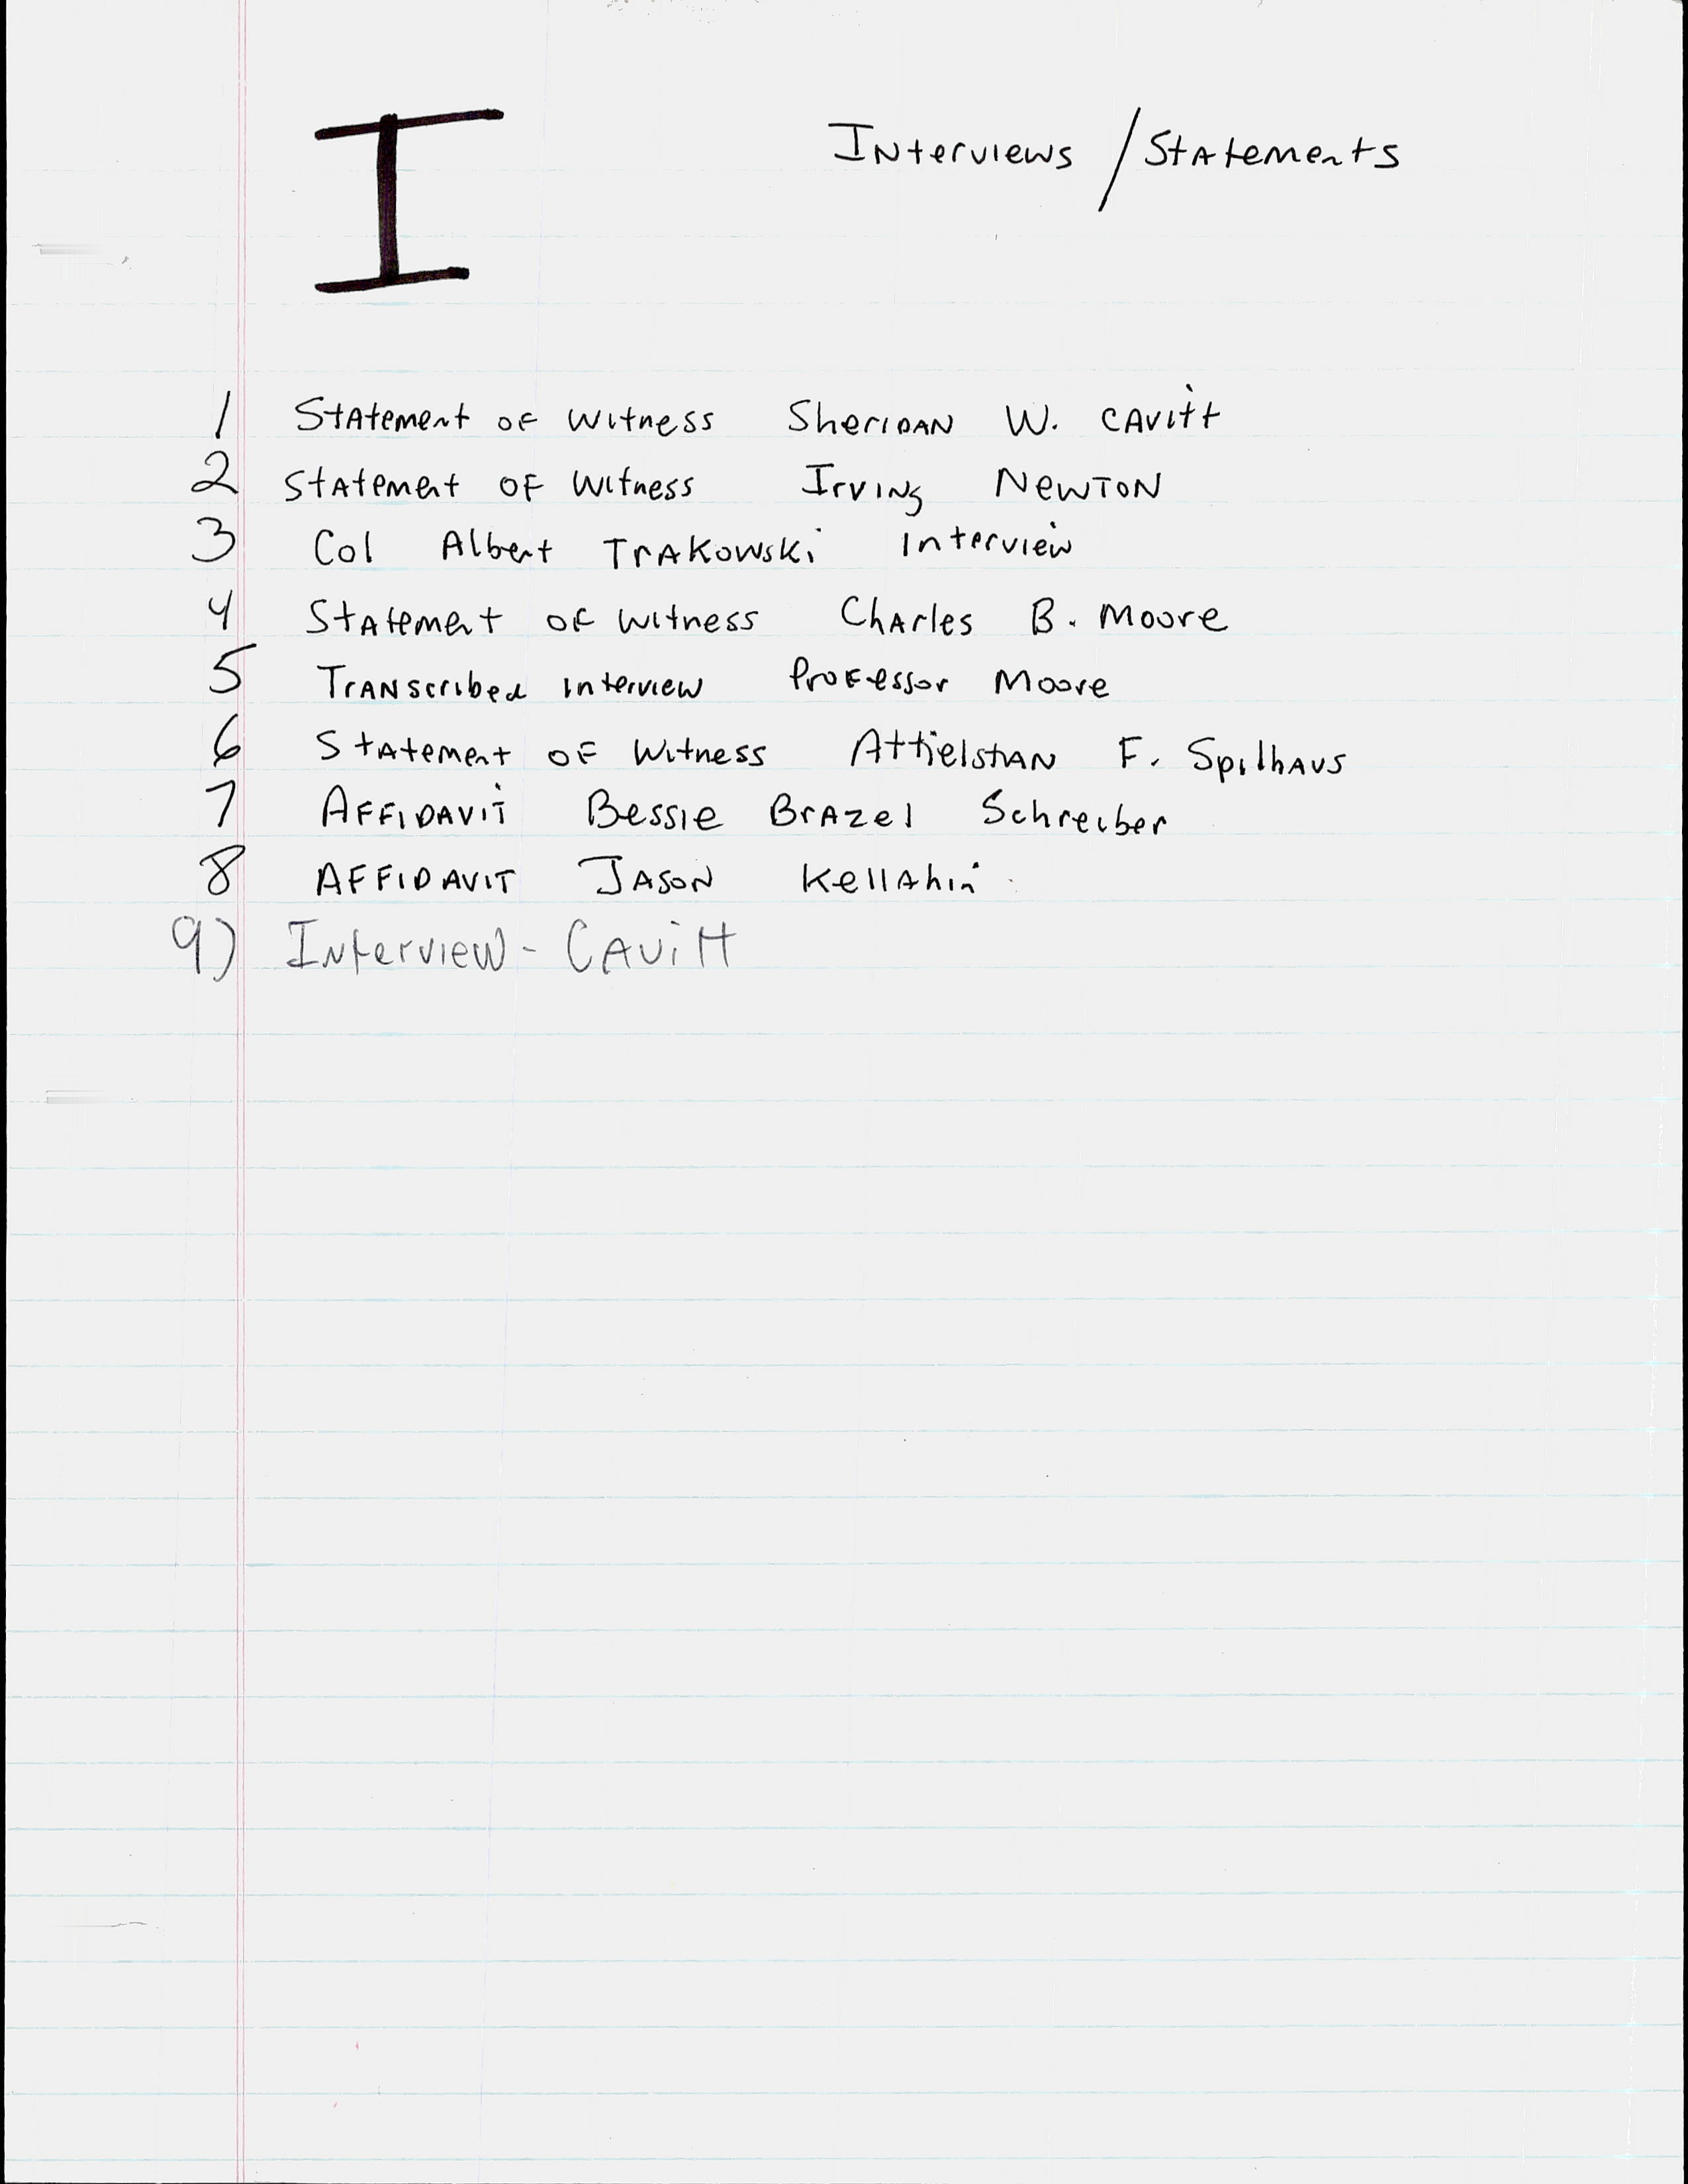 I Interviews / Statements
1 Statement of Witness Sheridan W. Cavitt
2 Statement of Witness Irving Newton
3 Col Albert Trakowski Interview
4 Statement of Witness Charles B. Moore
5 Transcribed Interview Professor Moore
6 Statement of Witness Attielstan F. Spilhaus
7 Affidavit Bessie Brazel Schreiber
8 Affidavit Jason Kellahin
9) Interview - Cavitt